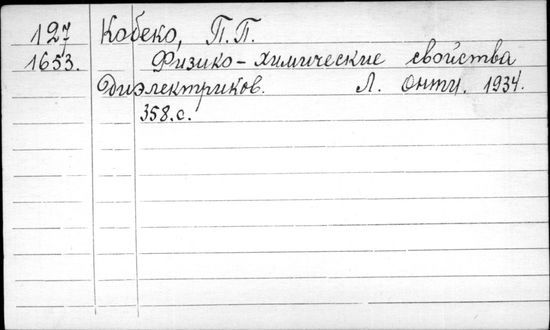 127 Кобеко, П.П.
1653. Физико-химические свойства
Диэлектриков. Л. Онти. 1934.
358.с.